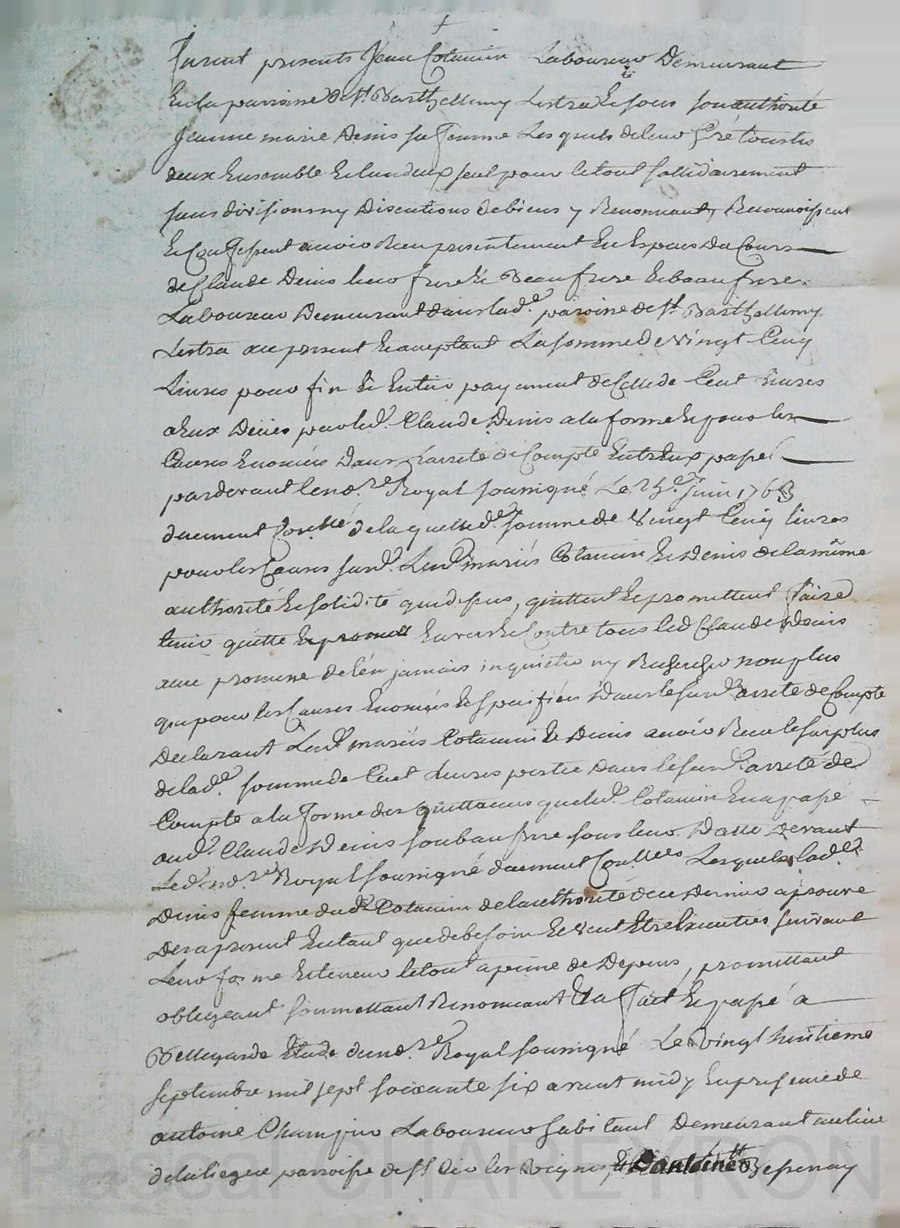 furent presents Jean Cotancin Laboureur Demeurant
En la parroisse de St Barthellemy Lestra Et sous son authorité
Jeanne marie Denis sa femme Lesquels de leur Gré tous les
deux Ensemble Et lun deux seul pour le tout sollidairement
sans division ny Discutions de biens y Renonnant, Reconnoissent
Et Confessent avoir Reçu presentement En Espece du Cours
de Claude Denis leur frere Et Beau frere
Laboureur Demeurant dans lade parroisse de St Barthellemy
Lestra icy present Et acceptant La somme de vingt Cinq
Livres pour fin Et Entier payement de Celle de Cent Livres
a Eux Deües par led. Claude Denis a la forme Et pour les
Causes Enoncées Dans Larreté de Compte Entreux passé
pardevant le nore Royal soussigné Le Juin 1763
duement de laquelle de somme de vingt Cinq livres
pour les Causes susd. Lesd. mariés Cotancin Et Denis de la même
authorité Et solidité que dessus, quittent Et promettent faire
tenir quitte Envers Et Contre tous led Claude Denis
avec promesse de len jamais inquietter ny Rechercher non plus
que pour les Causes Enoncées Et speciffiées Dans le susd. arreté de Compte
Declarant Lesd. mariés Cotancin Et Denis avoir Reçu le surplus
de lade somme de Cent Livres portée Dans le susd. arreté de
Compte a la forme des quittances que led. Cotancin En a passé
aud. Claude Denis son beau frere sous leur Datte Devant
Led. nore Royal soussigné duement Lesquelles lade
Denis femme dud. Cotancin de lauthorité de ce Dernier approuve
Des a present En tant que de besoin Et veut Etre Executtées suivant
Leur forme Et teneur le tout a peine de Depens, promettant
obligeant soumettant Renonceant Et a fait Et passé a
Bellegarde Etude du nore Royal soussigné Le vingt huitieme
septembre mil sept soixante six avant midy En presence de
antoine Laboureur habitant Demeurant au lieu
de parroisse de St Les Vignes Et D'antoine
Pascal CHAREYRON